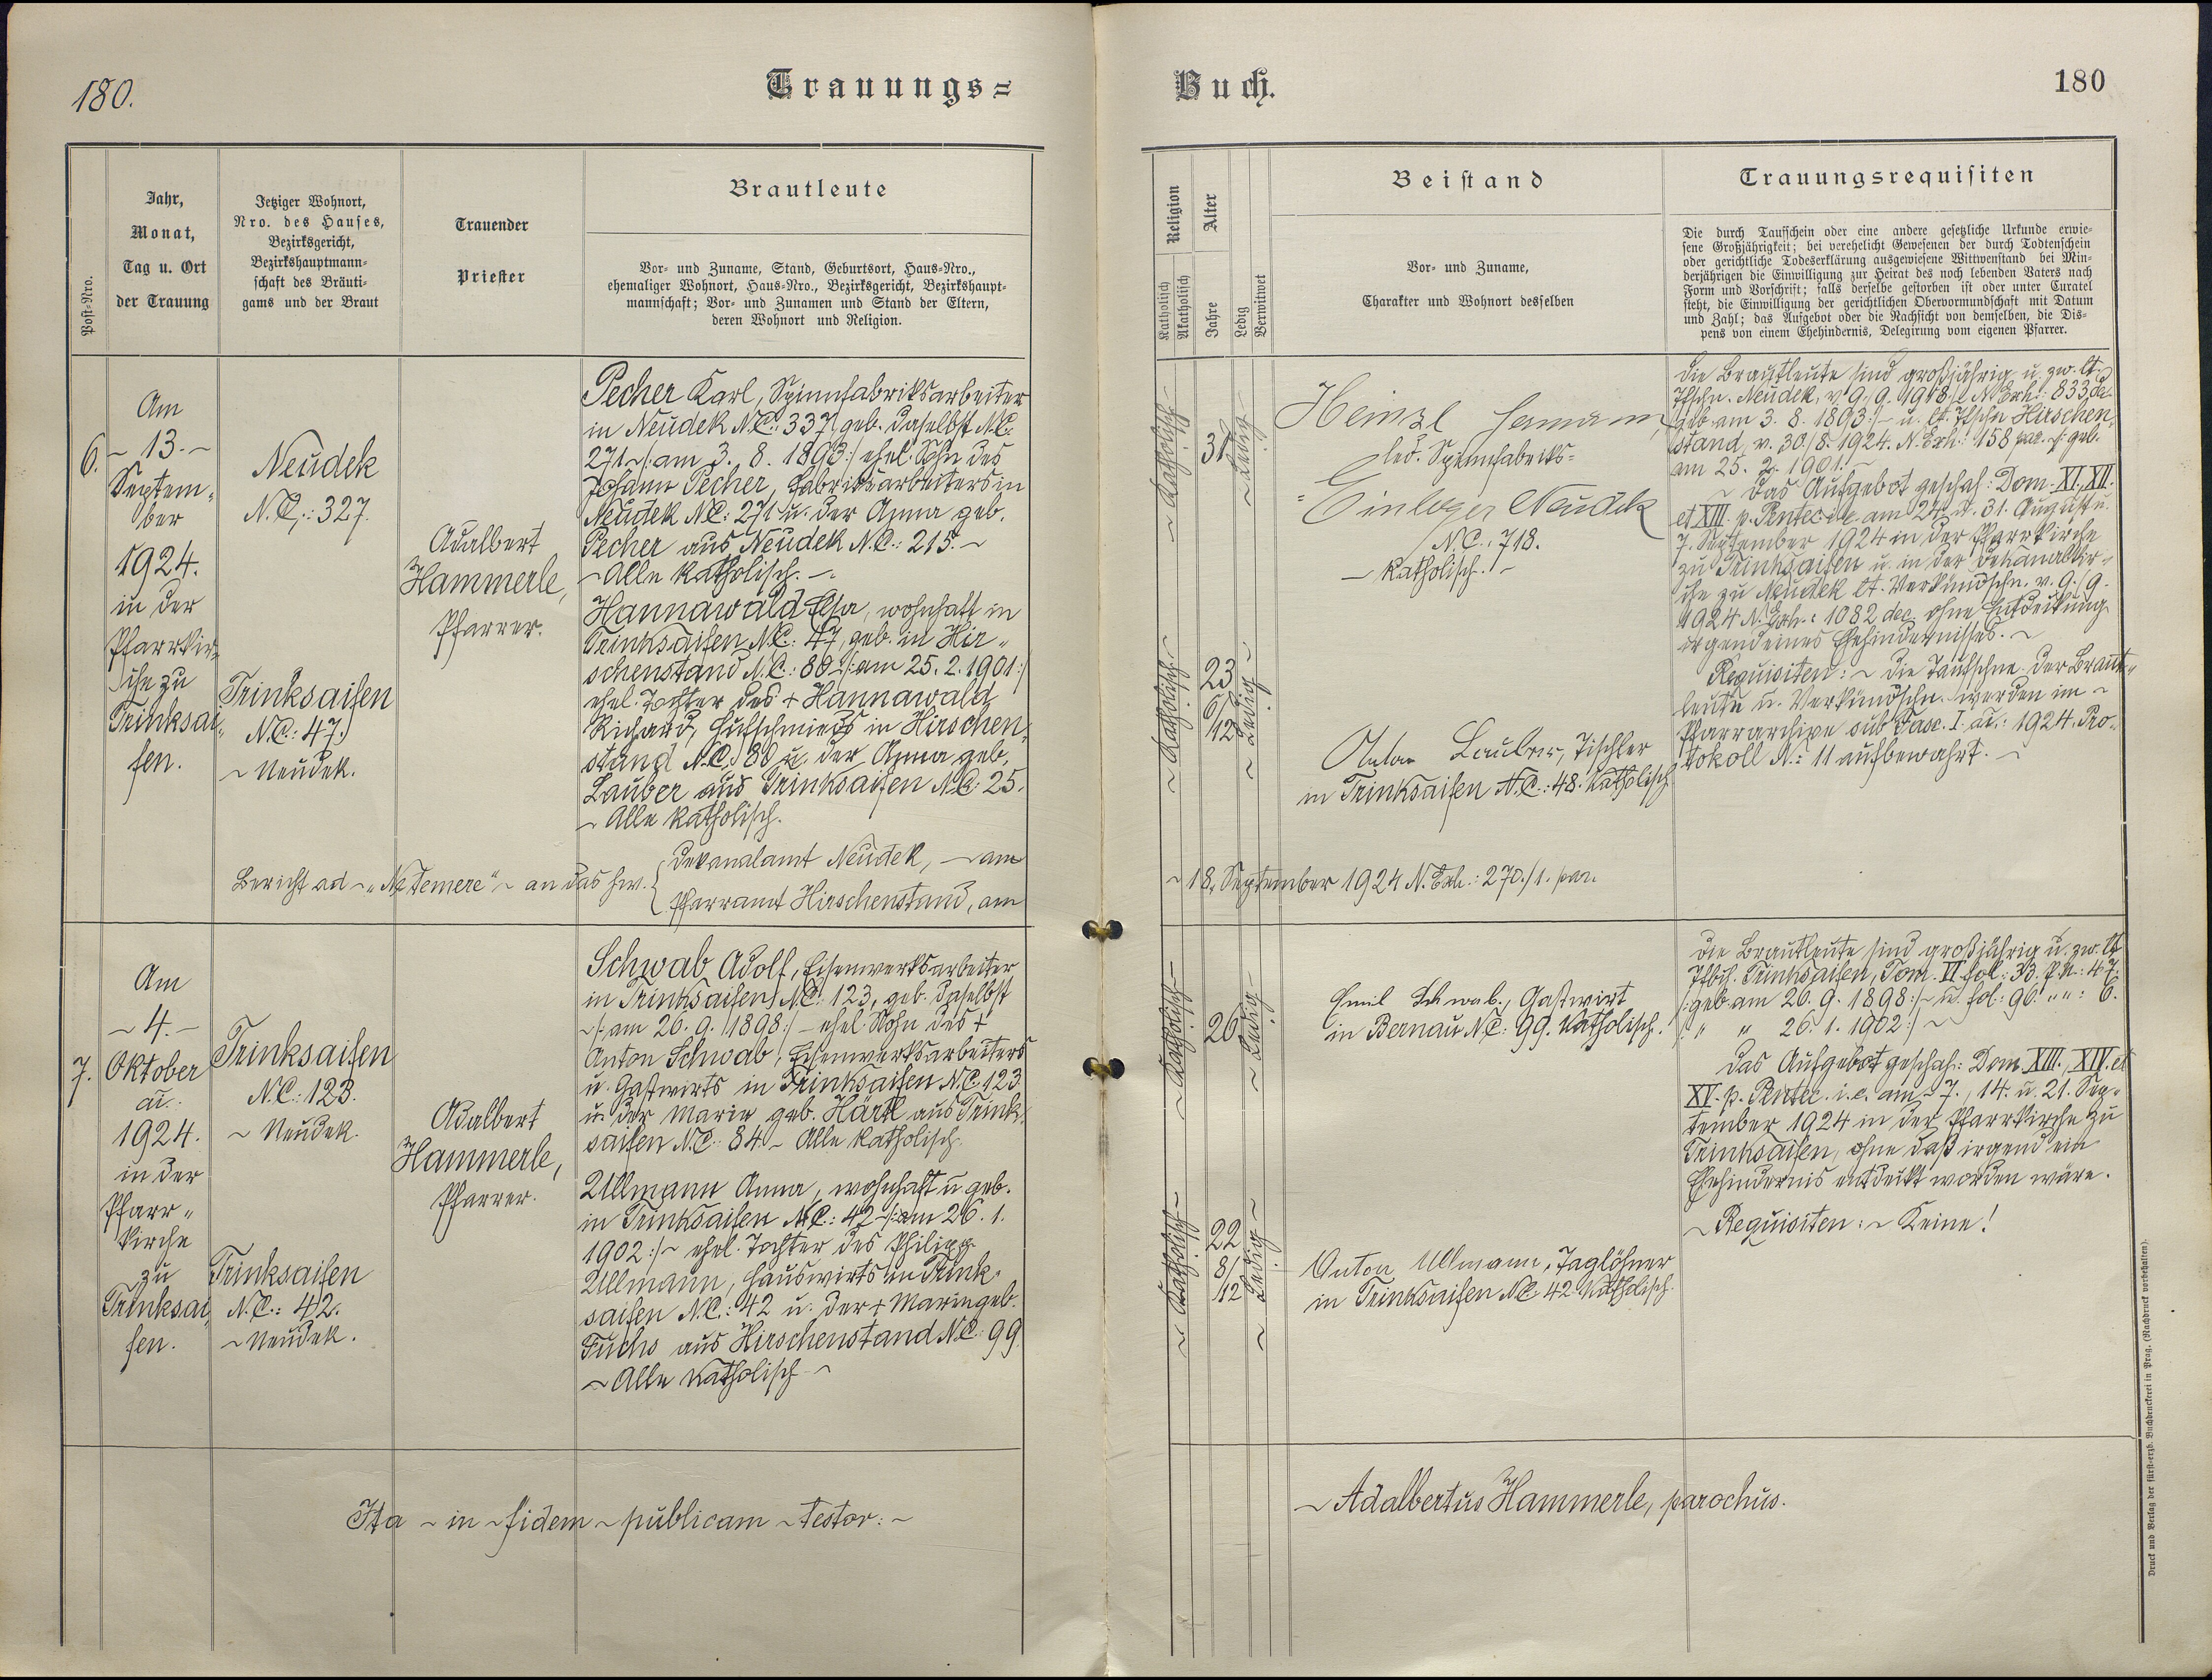 180.
Trauungs=
Buch.
180
Post-Nro.
Jahr,
Monat,
Tag u. Ort
der Trauung
Jetziger Wohnort,
Nro. des Hauses,
Bezirksgericht,
Bezirkshauptmann-
schaft des Bräuti-
gams und der Braut
Trauender
Priester
Brautleute
Vor- und Zuname, Stand, Geburtsort, Haus-Nro.,
ehemaliger Wohnort, Haus-Nro., Bezirksgericht, Bezirkshaupt-
mannschaft; Vor- und Zunamen und Stand der Eltern,
deren Wohnort und Religion.
Religion
Katholisch
Akatholisch
Alter
Jahre
Ledig
Verwitwet
Beistand
Vor- und Zuname,
Charakter und Wohnort desselben
Trauungsrequisiten
Die durch Taufschein oder eine andere gesetzliche Urkunde erwie-
sene Großjährigkeit; bei verehelicht Gewesenen der durch Todtenschein
oder gerichtliche Todeserklärung ausgewiesene Wittwenstand bei Min-
derjährigen die Einwilligung zur Heirat des noch lebenden Vaters nach
Form und Vorschrift; falls derselbe gestorben ist oder unter Curatel
steht, die Einwilligung der gerichtlichen Obervormundschaft mit Datum
und Zahl; das Aufgebot oder die Nachsicht von demselben, die Dis-
pens von einem Ehehindernis, Delegirung vom eigenen Pfarrer.
6.
Am
- 13. -
Septem-
ber
1924.
in der
Pfarrkir-
che zu
Trinksai-
fen.
Neudek
N.C.: 327.
Trinksaifen
N.C.: 47.
~ Neudek.
Adalbert
Hammerle,
Pfarrer.
Pecher Karl, Spinnfabriksarbeiter
in Neudek N.C.: 337, geb. daselbst N.C.
271 ~/: am 3. 8. 1893 :/ ehel. Sohn des
Johann Pecher, Fabriksarbeiters in
Neudek N.C.: 271 u. der Anna geb.
Pecher aus Neudek N.C.: 215. ~
~ Alle katholisch. ~
Hannawald Elsa, wohnhaft in
Trinksaifen N.C.: 47, geb. in Hir-
schenstand N.C.: 88 ~/: am 25. 2. 1901 :/
ehel. Tochter des + Hannawald
Richard, Hufschmieds in Hirschen-
stand N.C. 88 u. der Anna geb.
Lauber aus Trinksaifen N.C.: 25.
~ Alle katholisch.
Bericht ad ~ „Ne Temere" ~ an das hw.
Dekanalamt Neudek, ~ am
Pfarramt Hirschenstand, am
~ Katholisch ~
31
~ Ledig ~
~ Katholisch ~
23
6/
12
~ Ledig ~
Heinzl Hermann,
led. Spinnfabriks-
Einleger Neudek
N.C.: 718.
~ Katholisch. ~
Anton Lauber, Tischler
in Trinksaifen N.C.: 48. Katholisch
Die Brautleute sind großjährig u. zw. lt.
Tfschn. Neudek, v. 9./9. 1918, N. Exh.: 833 de
geb. am 3. 8. 1893 :/ ~ u. lt. Tfschn Hirschen-
stand, v. 30./8. 1924. N. Exh.: 158 par. /: geb.
am 25. 2. 1901. ~
~ Das Aufgebot geschah: Dom. XI., XII.
et XIII. p. Pentec. i. e. am 24. u. 31. August u.
7. September 1924 in der Pfarrkirche
zu Trinksaifen u. in der Dekanalkir-
che zu Neudek lt. Verkündschn. v. 9./9.
1924 N. Exh.: 1082 dec. ohne Entdeckung
irgendeines Ehehindernisses. ~
Requisiten: ~ Die Taufschne. der Braut-
leute u. Verkündschn. werden im ~
Pfarrarchive sub Fasc. I. ai.: 1924. Pro-
tokoll N.: 11 aufbewahrt. ~
~ 18. September 1924 N. Exh.: 270./1. par.
7.
Am
~ 4. ~
Oktober
ai.
1924.
in der
Pfarr-
kirche
zu
Trinksai-
fen.
Trinksaifen
N.C.: 123.
~ Neudek.
Trinksaifen
N.C.: 42.
~ Neudek.
Adalbert
Hammerle,
Pfarrer.
Schwab Adolf, Eisenwerksarbeiter
in Trinksaifen N.C. 123, geb. daselbst
~/: am 26. 9. 1898 :/ ~ ehel. Sohn des +
Anton Schwab, Eisenwerksarbeiters
u. Gastwirts in Trinksaifen N.C. 123
u. der Marie geb. Härtl aus Trink-
saifen N.C.: 84. ~ Alle katholisch.
Ullmann Anna, wohnhaft u. geb.
in Trinksaifen N.C.: 42 ~/: am 26. 1.
1902 :/ ~ ehel. Tochter des Philipp
Ullmann, Hauswirts in Trink-
saifen N.C.: 42 u. der + Marie geb.
Fuchs aus Hirschenstand N.C.: 99.
~ Alle katholisch ~
~ Katholisch ~
26
~ Ledig ~
~ Katholisch ~
22
8/
12
~ Ledig ~
Emil Schwab, Gastwirt
in Bernau N.C.: 99. Katholisch.
Anton Ullmann, Taglöhner
in Trinksaifen N.C. 42 Katholisch.
Die Brautleute sind großjährig u. zw. lt.
Tfbch. Trinksaifen, Tom. VI fol.: 33. P.N.: 47.
/: geb. am 26. 9. 1898 :/ ~ u. fol: 96. „ „: 6.
/: „ „ 26. 1. 1902 :/ ~
Das Aufgebot geschah: Dom. XIII., XIV. et
XV. p. Pentec. i. e. am 7., 14. u. 21. Sep-
tember 1924 in der Pfarrkirche zu
Trinksaifen, ohne daß irgend ein
Ehehindernis entdeckt worden wäre.
~ Requisiten: ~ Keine!
Ita ~ in ~ fidem ~ publicam ~ testor: ~
~ Adalbertus Hammerle, parochus.
Druck und Verlag der fürst-erzb. Buchdruckerei in Prag. (Nachdruck vorbehalten).